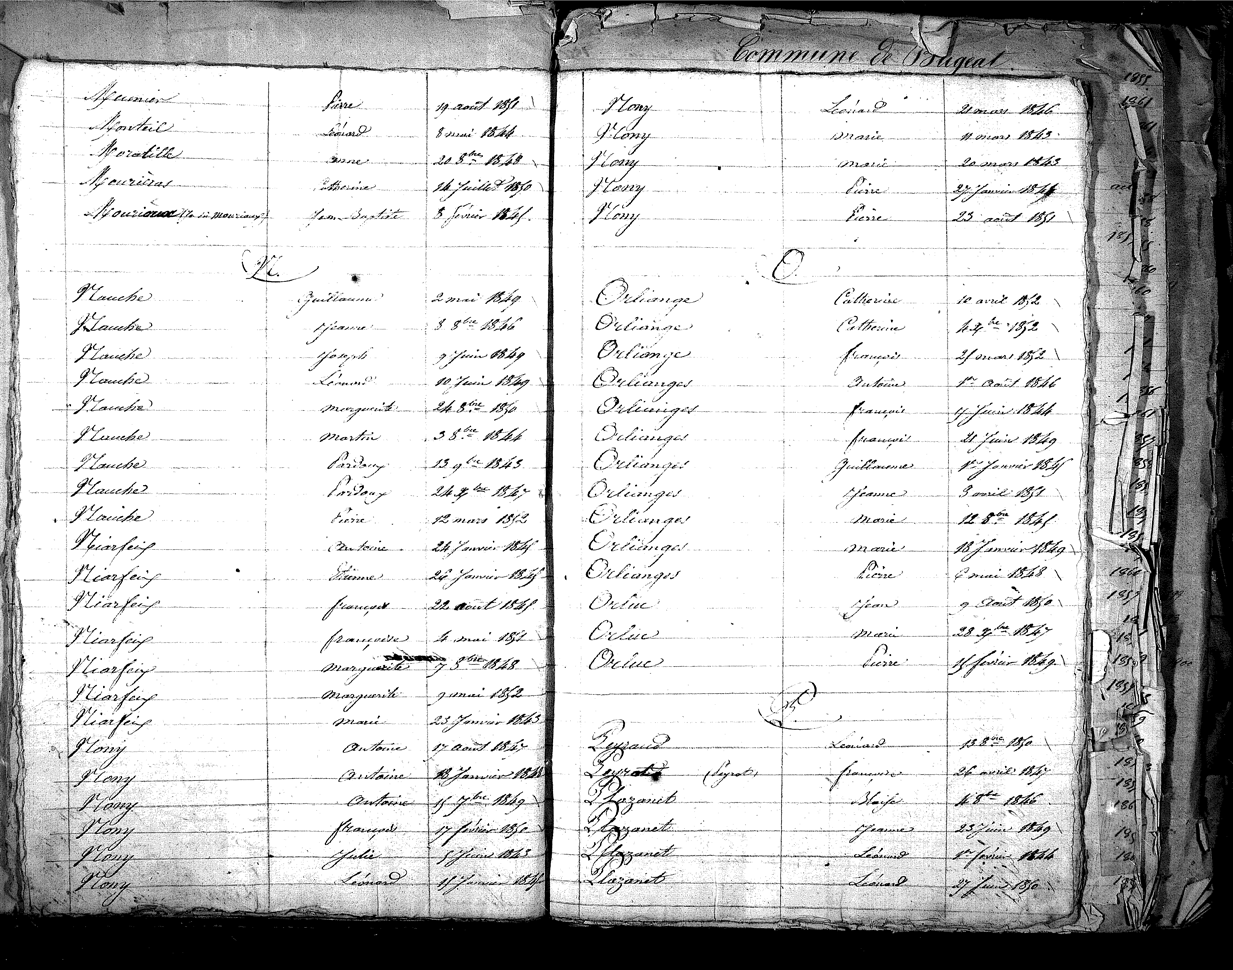 Commune de Bugeat
Meunier Pierre 19 août 1851
Monteil Léonard 8 mai 1844
Moratille anne 20 8bre 1848
Mourieras Catherine 14 Juillet 1850
Mourioux Jean-Baptiste 8 février 1845
N.
Nauche Guillaume 2 mai 1849
Nauche Jeanne 8 8bre 1846
Nauche Joseph 9 Juin 1849
Nauche Léonard 10 Juin 1849
Nauche marguerite 24 8bre 1850
Nauche martin 3 8bre 1844
Nauche Pardoux 13 9bre 1843
Nauche Pardoux 24 1847
Nauche Pierre 12 mars 1852
Niarfeix antoine 24 Janvier 1845
Niarfeix Etienne 26 Janvier 1845
Niarfeix françois 22 août 1845
Niarfeix françoise 4 mai 1851
Niarfeix marguerite 7 8bre 1848
Niarfeix marguerite 9 mai 1852
Niarfeix marie 23 Janvier 1843
Nony antoine 17 août 1847
Nony antoine 18 Janvier 1848
Nony antoine 15 7bre 1849
Nony françois 17 février 1850
Nony Julie 5 Juin 1843
Nony Léonard 15 Janvier 1845
Nony Léonard 21 mars 1846
Nony marie 11 mars 1843
Nony marie 20 mars 1843
Nony Pierre 27 Janvier 1844
Nony Pierre 23 août 1851
O.
Orliange Catherine 10 avril 1852
Orliange Catherine 1852
Orliange françois 25 mars 1852
Orlianges antoine 1er août 1846
Orlianges françois 7 Juin 1844
Orlianges françois 21 Juin 1849
Orlianges Guillaume 1er Janvier 1845
Orlianges Jeanne 3 avril 1851
Orlianges marie 12 8bre 1845
Orlianges marie 18 Janvier 1849
Orlianges Pierre 6 mai 1848
Orluc Jean 9 août 1850
Orluc marie 28 1847
Orluc Pierre 15 février 1849
P.
Peyraud Léonard 13 8bre 1850
Peyrat (Peyrot) françoise 26 avril 1847
Plazanet Blaise 1846
Plazanet Jeanne 23 Juin 1849
Plazanet Léonard 1er février 1844
Plazanet Léonard 27 Juin 1850